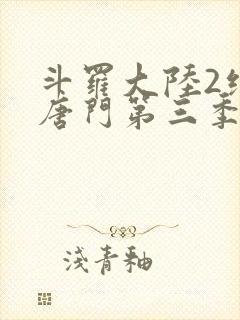 斗羅大陸2絕
唐門第三季
淺青釉